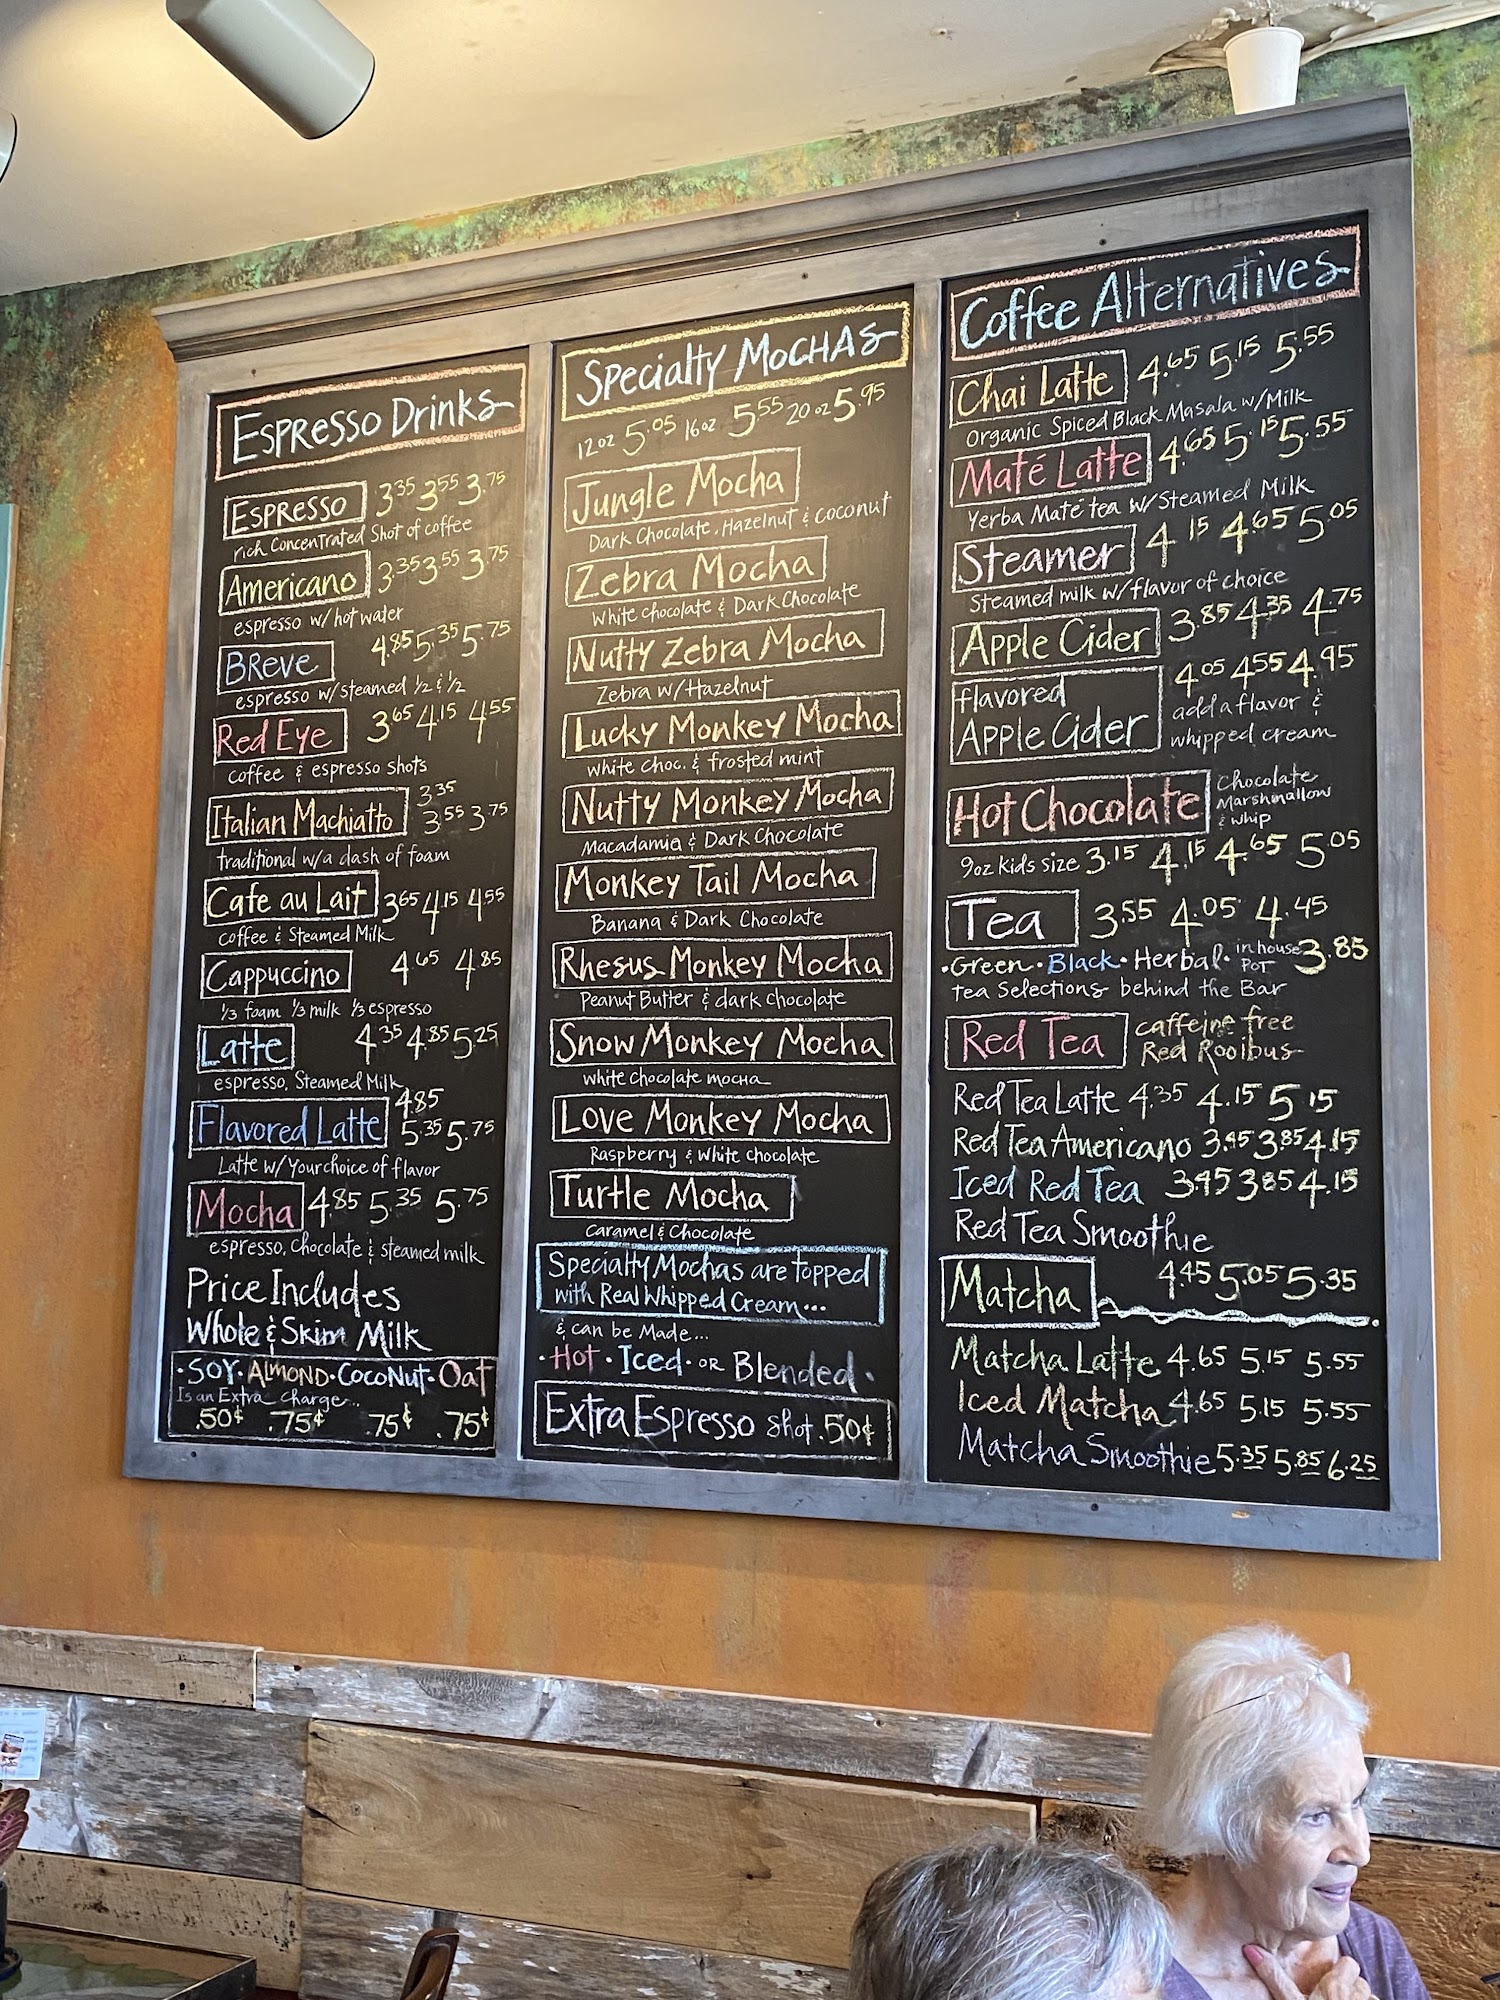 Espresso Drinks
Espresso 3.35 3.55 3.75
rich Concentrated Shot of coffee
Americano 3.35 3.55 3.75
espresso w/hot water
BReve 4.85 5.35 5.75
espresso w/steamed ½ & ½
Red Eye 3.65 4.15 4.55
coffee & espresso shots
Italian Machiatto 3.35 3.55 3.75
traditional w/a dash of foam
Cafe au Lait 3.65 4.15 4.55
coffee & Steamed Milk
Cappuccino 4.65 4.85
⅓ foam ⅓ milk ⅓ espresso
Latte 4.35 4.85 5.25
espresso, Steamed Milk
Flavored Latte 4.85 5.35 5.75
Latte w/Your choice of flavor
Mocha 4.85 5.35 5.75
espresso, Chocolate & steamed milk
Price Includes
Whole & Skim Milk
•SOY•ALMOND•COCONUT•Oat
Is an Extra charge...
.50¢ .75¢ .75¢ .75¢
Specialty MOCHAS
12oz 5.05 16oz 5.55 20oz 5.95
Jungle Mocha
Dark Chocolate, Hazelnut & coconut
Zebra Mocha
White chocolate & Dark Chocolate
Nutty Zebra Mocha
Zebra w/Hazelnut
Lucky Monkey Mocha
white choc. & frosted mint
Nutty Monkey Mocha
Macadamia & Dark Chocolate
Monkey Tail Mocha
Banana & Dark Chocolate
Rhesus Monkey Mocha
Peanut Butter & dark chocolate
Snow Monkey Mocha
white chocolate mocha
Love Monkey Mocha
Raspberry & white chocolate
Turtle Mocha
Caramel & Chocolate
Specialty Mochas are topped
with Real Whipped Cream...
& can be Made...
•Hot•Iced•OR Blended•
Extra Espresso shot .50¢
Coffee Alternatives
Chai Latte 4.65 5.15 5.55
Organic Spiced Black Masala w/Milk
Maté Latte 4.65 5.15 5.55
Yerba Maté tea w/Steamed Milk
Steamer 4.15 4.65 5.05
Steamed milk w/flavor of choice
Apple Cider 3.85 4.35 4.75
flavored Apple Cider 4.05 4.55 4.95
add a flavor &
whipped cream
Hot Chocolate Chocolate
Marshmallow
& whip
9oz kids size 3.15 4.15 4.65 5.05
Tea 3.55 4.05 4.45
•Green•Black•Herbal• in house POT 3.85
tea Selections behind the Bar
Red Tea caffeine free
Red Rooibus
Red Tea Latte 4.35 4.15 5.15
Red Tea Americano 3.45 3.85 4.15
Iced Red Tea 3.45 3.85 4.15
Red Tea Smoothie
4.45 5.05 5.35
Matcha
Matcha Latte 4.65 5.15 5.55
Iced Matcha 4.65 5.15 5.55
Matcha Smoothie 5.35 5.85 6.25